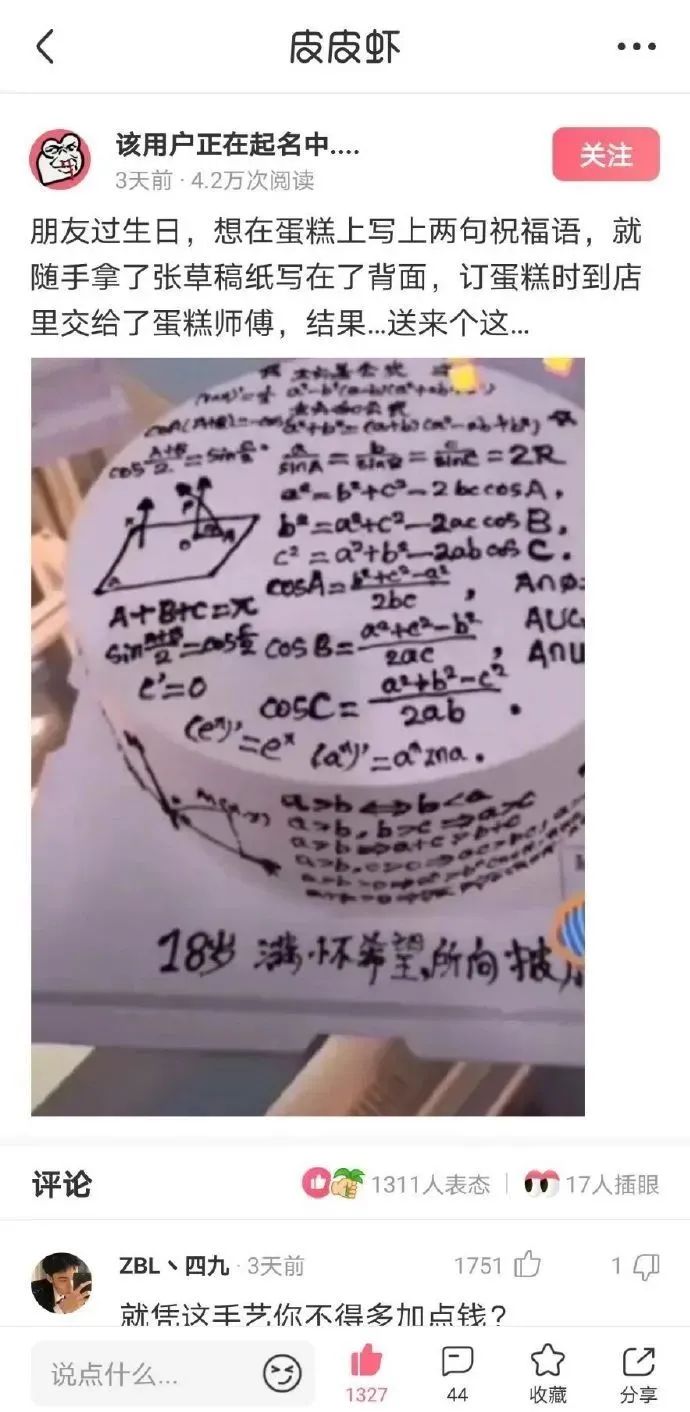 皮皮虾
该用户正在起名中....
3天前 · 4.2万次阅读
关注
朋友过生日，想在蛋糕上写上两句祝福语，就
随手拿了张草稿纸写在了背面，订蛋糕时到店
里交给了蛋糕师傅，结果...送来个这...
cos A+B/2 = sin C/2
a/sinA = b/sinB = c/sinC = 2R
a²=b²+c²-2bccosA,
b²=a²+c²-2accosB,
c²=a²+b²-2abcosC.
cosA= b²+c²-a²/2bc ,
A+B+C=π
sin A+B/2 = cos C/2
cosB= a²+c²-b²/2ac ,
C'=0
cosC= a²+b²-c²/2ab .
(eˣ)'=eˣ
a>b⇔b<a
a>b, b>c⇒a>c
a>b⇒a+c>b+c
18岁 满怀希望,所向披
评论
1311人表态
17人插眼
ZBL丶四九 · 3天前
1751
1
就凭这手艺你不得多加点钱？
说点什么...
1327
44
收藏
分享